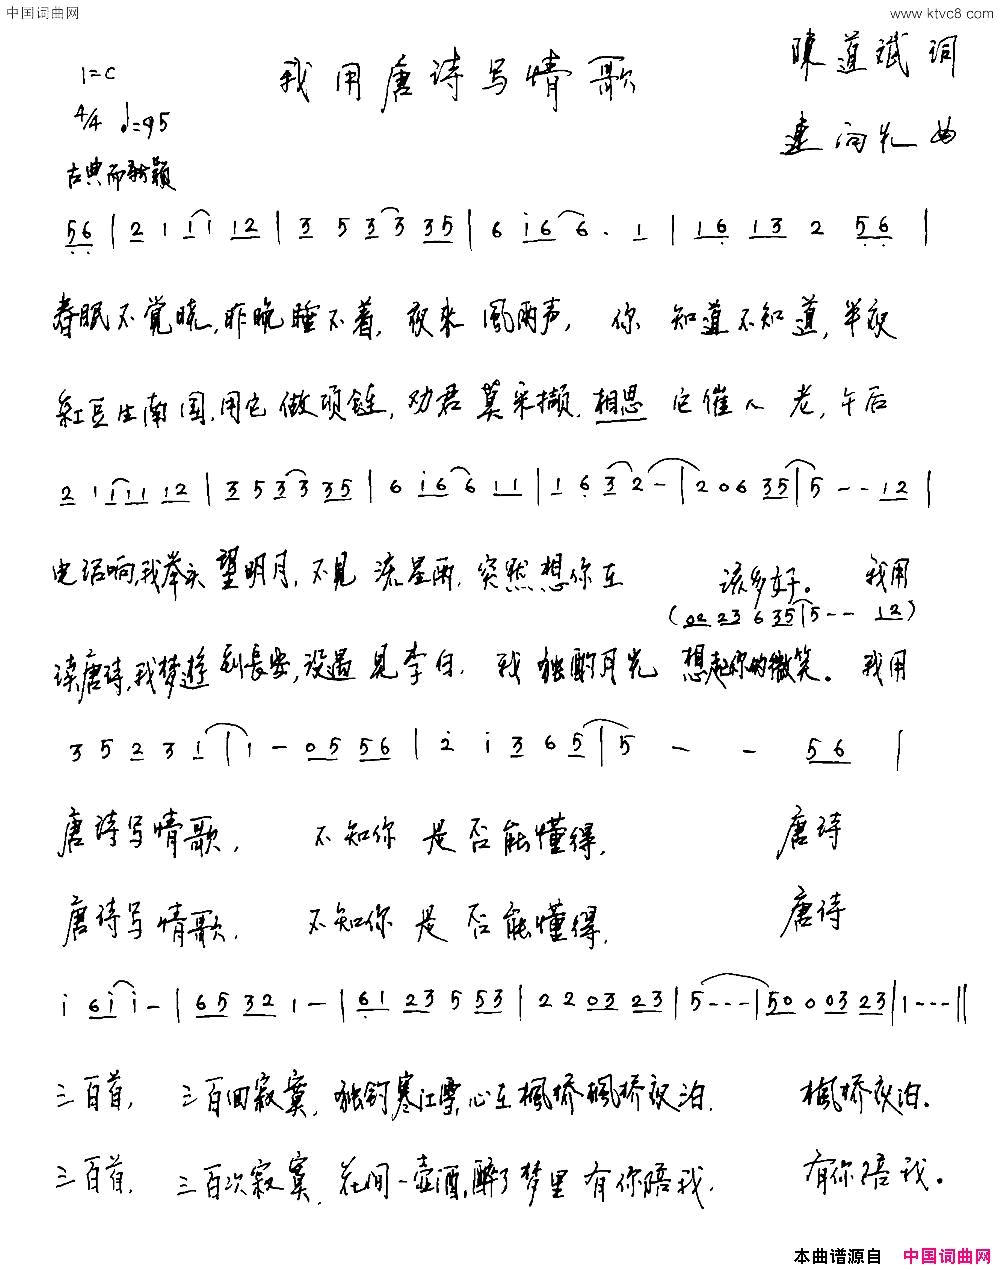 中国词曲网 www.ktvc8.com
我用唐诗写情歌
1=C
陳道斌 词
4/4 ♩=95
曲
古典而新颖
56 | 2 1 1 1 12 | 3 5 3 3 35 | 6 i6 6. 1 | 16 13 2 56 |
春眠不觉晓,昨晚睡不着,夜来風雨声,你 知道不知道,半夜
紅豆生南国,用它做项链,劝君莫采撷,相思 它催人老,午后
2 1 111 12 | 3 5 3 3 35 | 6 i6 6 11 | 1 6 3 2 - | 2 0 6 35 | 5 - - 12 |
电话响,我举头望明月,不见流星雨,突然想你在 该多好。 我用
(02 23 6 35 | 5 - - 12)
读唐诗,我梦遊到長安,没遇見李白,我独酌月光 想起你的微笑。 我用
3 5 2 3 1 | 1 - 05 56 | 2 i 3 6 5 | 5 - - 56 |
唐诗写情歌, 不知你是否能懂得, 唐诗
唐诗写情歌, 不知你是否能懂得, 唐诗
i 6i i - | 65 32 1 - | 61 23 5 53 | 2 2 03 23 | 5 - - - | 50 0 03 23 | 1 - - - ||
三百首, 三百回寂寞,独钓寒江雪,心在楓桥楓桥夜泊, 楓桥夜泊。
三百首, 三百次寂寞,花间一壶酒,醉了梦里有你陪我, 有你陪我。
本曲谱源自 中国词曲网